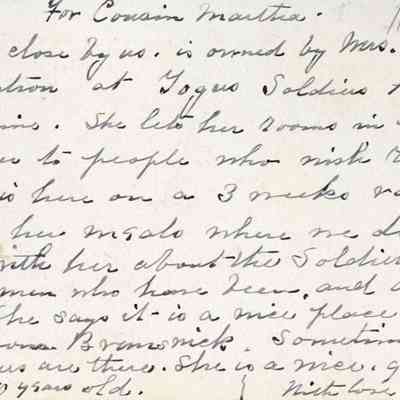 For Cousin Martha.
close by us. is owned by Mrs.
at Togus Soldiers
She lets her rooms in
to people who wish
is here on a 3 weeks
her meals where we
with her about the Soldier
men who have been, and
She says it is a nice place
Brunswick. Sometim
are there. She is a nice.
years old. With love